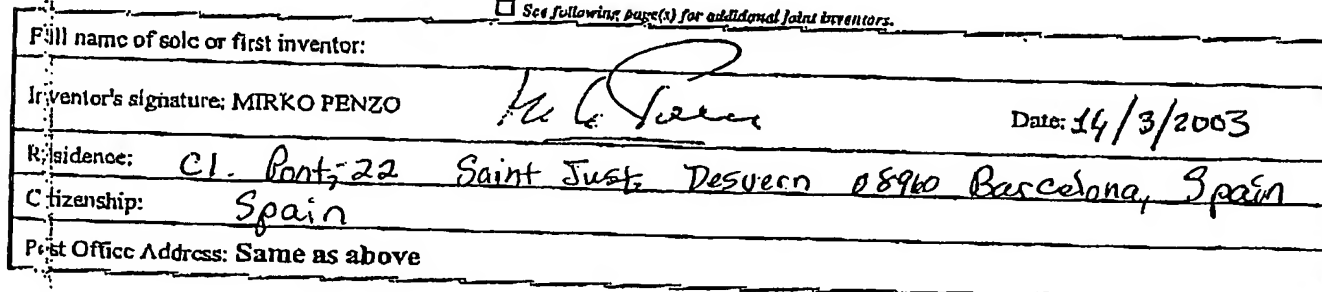 ☐ See following page(s) for additional joint inventors.
Full name of sole or first inventor:
Inventor's signature: MIRKO PENZO Date: 14/3/2003
Residence: Cl. Pont, 22 Saint Just Desvern 08960 Barcelona, Spain
Citizenship: Spain
Post Office Address: Same as above